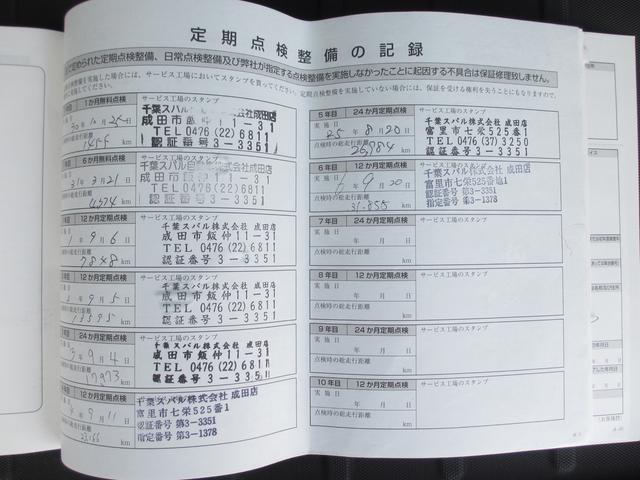 定期点検整備の記録
められた定期点検整備、日常点検整備及び弊社が指定する点検整備を実施しなかったことに起因する不具合は保証修理致しません。
を実施した場合には、サービス工場においてスタンプを貰ってください。定期点検整備を実施していない場合には、保証を受ける権利を失うことにもなりますので、
1か月無料点検
サービス工場のスタンプ
千葉スバル
成田店
成田市
11-31
TEL 0476 (22) 6811
認証番号 3-3351
30年 10月 25日
km
6か月無料点検
サービス工場のスタンプ
千葉スバル
株式会社 成田店
成田市飯仲11-31
TEL 0476 (22) 6811
認証番号 3-3351
31年 3月 21日
点検時の総走行距離
4574 km
12か月定期点検
サービス工場のスタンプ
千葉スバル株式会社 成田店
成田市飯仲11-31
TEL 0476 (22) 6811
認証番号 3-3351
1年 9月 6日
時の総走行距離
7848 km
12か月定期点検
サービス工場のスタンプ
千葉スバル株式会社 成田店
成田市飯仲11-31
TEL 0476 (22) 6811
認証番号 3-3351
2年 9月 5日
時の総走行距離
km
24か月定期点検
サービス工場のスタンプ
千葉スバル株式会社 成田店
成田市飯仲11-31
TEL 0476 (22) 6811
認証番号 3-3351
3年 9月 4日
時の総走行距離
17973 km
12か月定期点検
千葉スバル株式会社 成田店
富里市七栄525番1
認証番号 第3-3351
指定番号 第3-1378
年 9月 11日
時の総走行距離
km
5年目
24か月定期点検
サービス工場のスタンプ
千葉スバル株式会社 成田店
富里市七栄525番1
TEL 0476 (37) 3250
認証番号 3-3351
実施日
8月 20日
点検時の総走行距離
km
6年目
12か月定期点検
サービス工場のスタンプ
千葉スバル株式会社 成田店
富里市七栄525番地1
認証番号 第3-3351
指定番号 第3-1378
実施日
6年 9月 20日
点検時の総走行距離
31-855 km
7年目
24か月定期点検
サービス工場のスタンプ
実施日
年 月 日
点検時の総走行距離
km
8年目
12か月定期点検
サービス工場のスタンプ
実施日
年 月 日
点検時の総走行距離
km
9年目
24か月定期点検
サービス工場のスタンプ
実施日
年 月 日
点検時の総走行距離
km
10年目
12か月定期点検
サービス工場のスタンプ
実施日
年 月 日
点検時の総走行距離
km